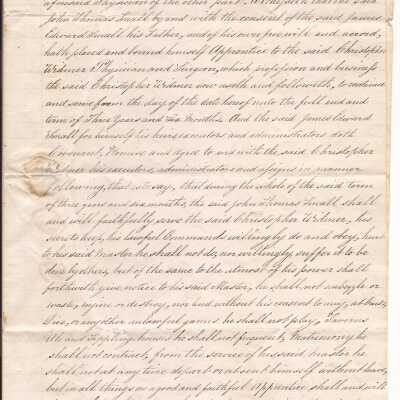 aforesaid Physician of the other part, Witnesseth that the said
John Thomas Small by and with the consent of the said James
Edward Small his Father, and of his own free will and accord,
hath placed and bound himself Apprentice to the said Christopher
Widmer Physician and Surgeon, which profession and business
the said Christopher Widmer now useth and followeth, to continue
and serve from the day of the date hereof unto the full end and
term of Three Years and six Months. And the said James Edward
Small for himself his heirs executors and administrators doth
Covenant, Promise and agree to and with the said Christopher
Widmer his executors, administrators and assigns in manner
following, that is to say, that during the whole of the said term
of three years and six months, the said John Thomas Small shall
and will faithfully serve the said Christopher Widmer, his
secrets keep, his lawful Commands willingly do and obey, hurt
to his said Master he shall not do, nor willingly suffer it to be
done by others, but of the same to the utmost of his power shall
forthwith give notice to his said Master, he shall not embezzle or
waste, injure or destroy, nor lend without his consent to any, at Cards,
Dice, or any other unlawful games he shall not play, Taverns
Ale and Tippling houses he shall not frequent, Matrimony he
shall not contract, from the service of his said master he
shall not at any time depart or absent himself without leave,
but in all things as a good and faithful Apprentice shall and will